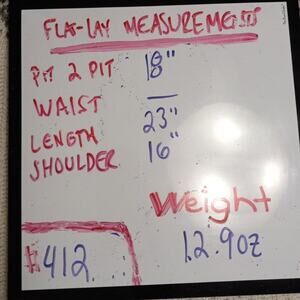 FLAT-LAY MEASUREMENTS
PIT 2 PIT 18"
WAIST —
LENGTH 23"
SHOULDER 16"
Weight
#412 12.90Z